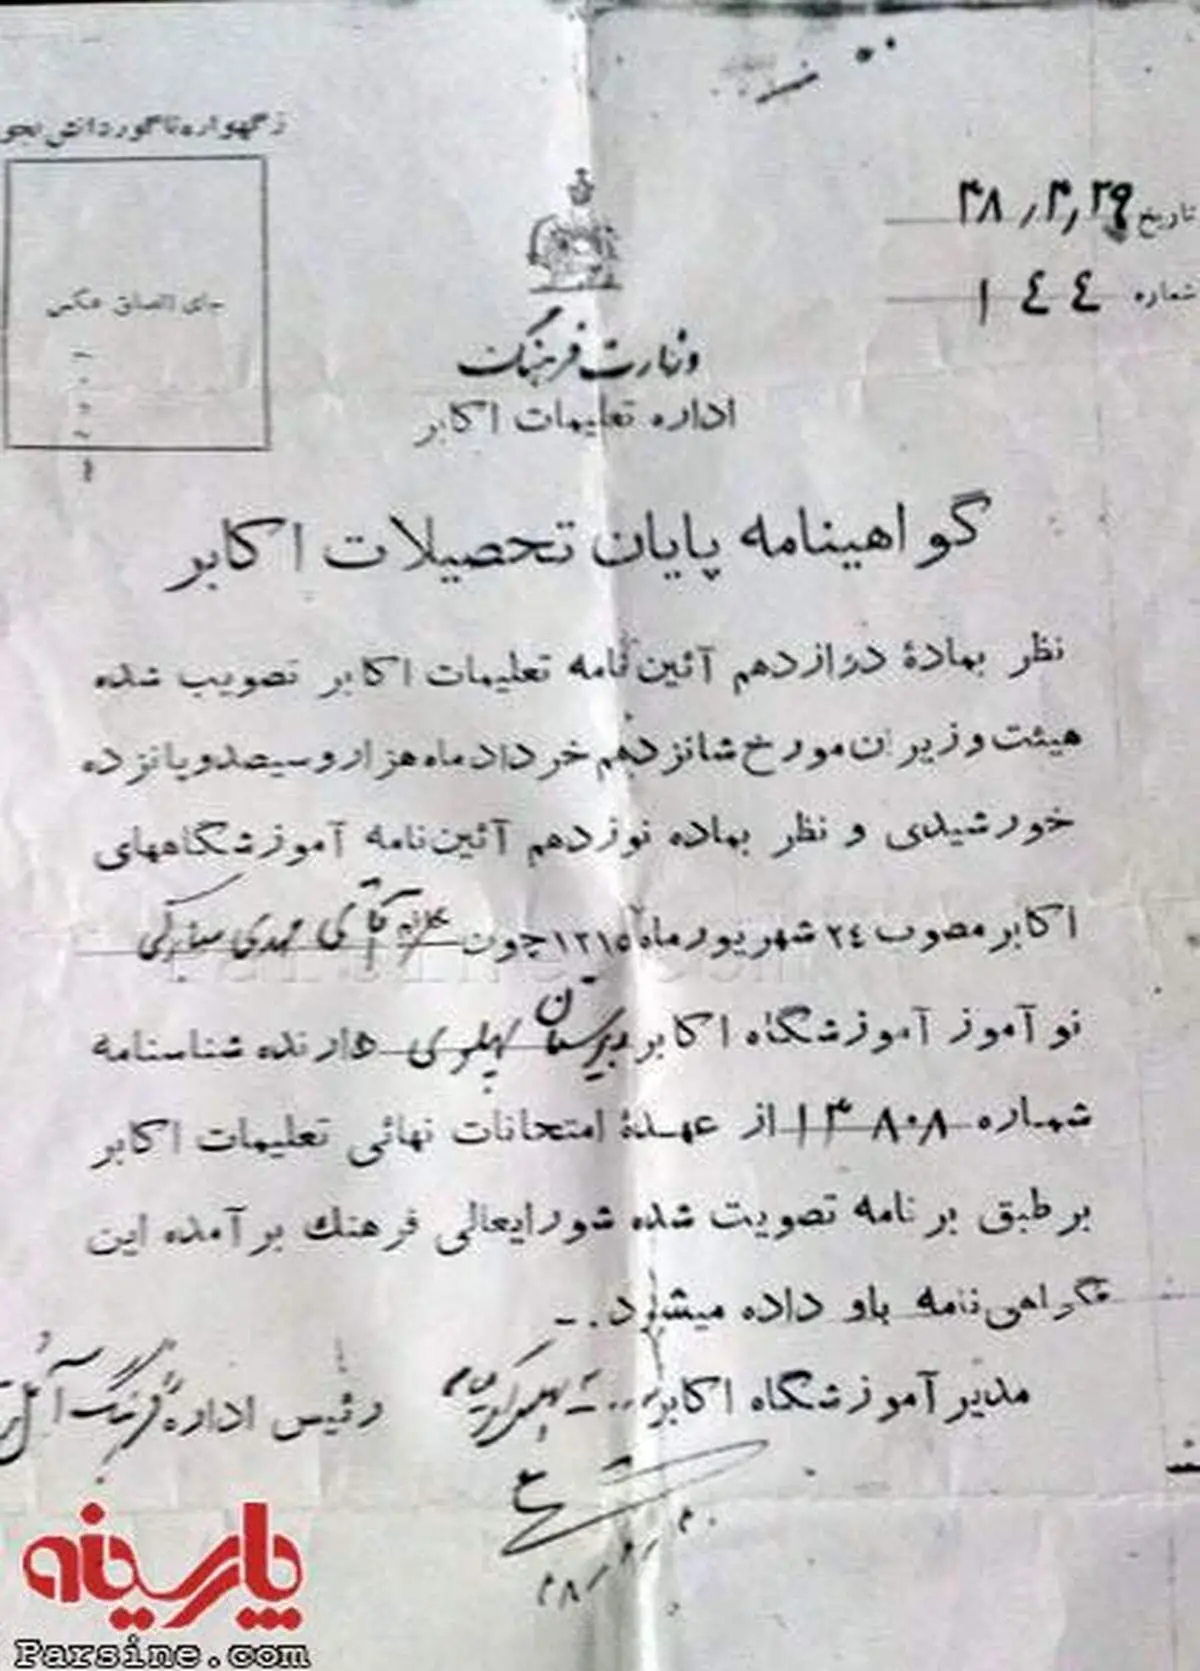 ز گهواره تا گور دانش بجو
تاریخ ۳۸٫۳٫۲۹
شماره ۱۴۴
جای الصاق عکس
وزارت فرهنگ
اداره تعلیمات اکابر
گواهینامه پایان تحصیلات اکابر
نظر بمادهٔ دوازدهم آئین‌نامه تعلیمات اکابر تصویب شده
هیئت وزیران مورخ شانزدهم خرداد ماه هزار و سیصد و پانزده
خورشیدی و نظر بماده نوزدهم آئین‌نامه آموزشگاههای
اکابر مصوب ۲۴ شهریور ماه ۱۳۱۵ چون آقای مهدی
نوآموز آموزشگاه اکابر دبیرستان پهلوی دارنده شناسنامه
شماره ۱۳۸۰۸ از عهدهٔ امتحانات نهائی تعلیمات اکابر
بر طبق برنامه تصویت شده شورایعالی فرهنك برآمده این
گواهی‌نامه باو داده میشود.-
مدیر آموزشگاه اکابر
رئیس اداره فرهنگ
پارسینه
Parsine.com